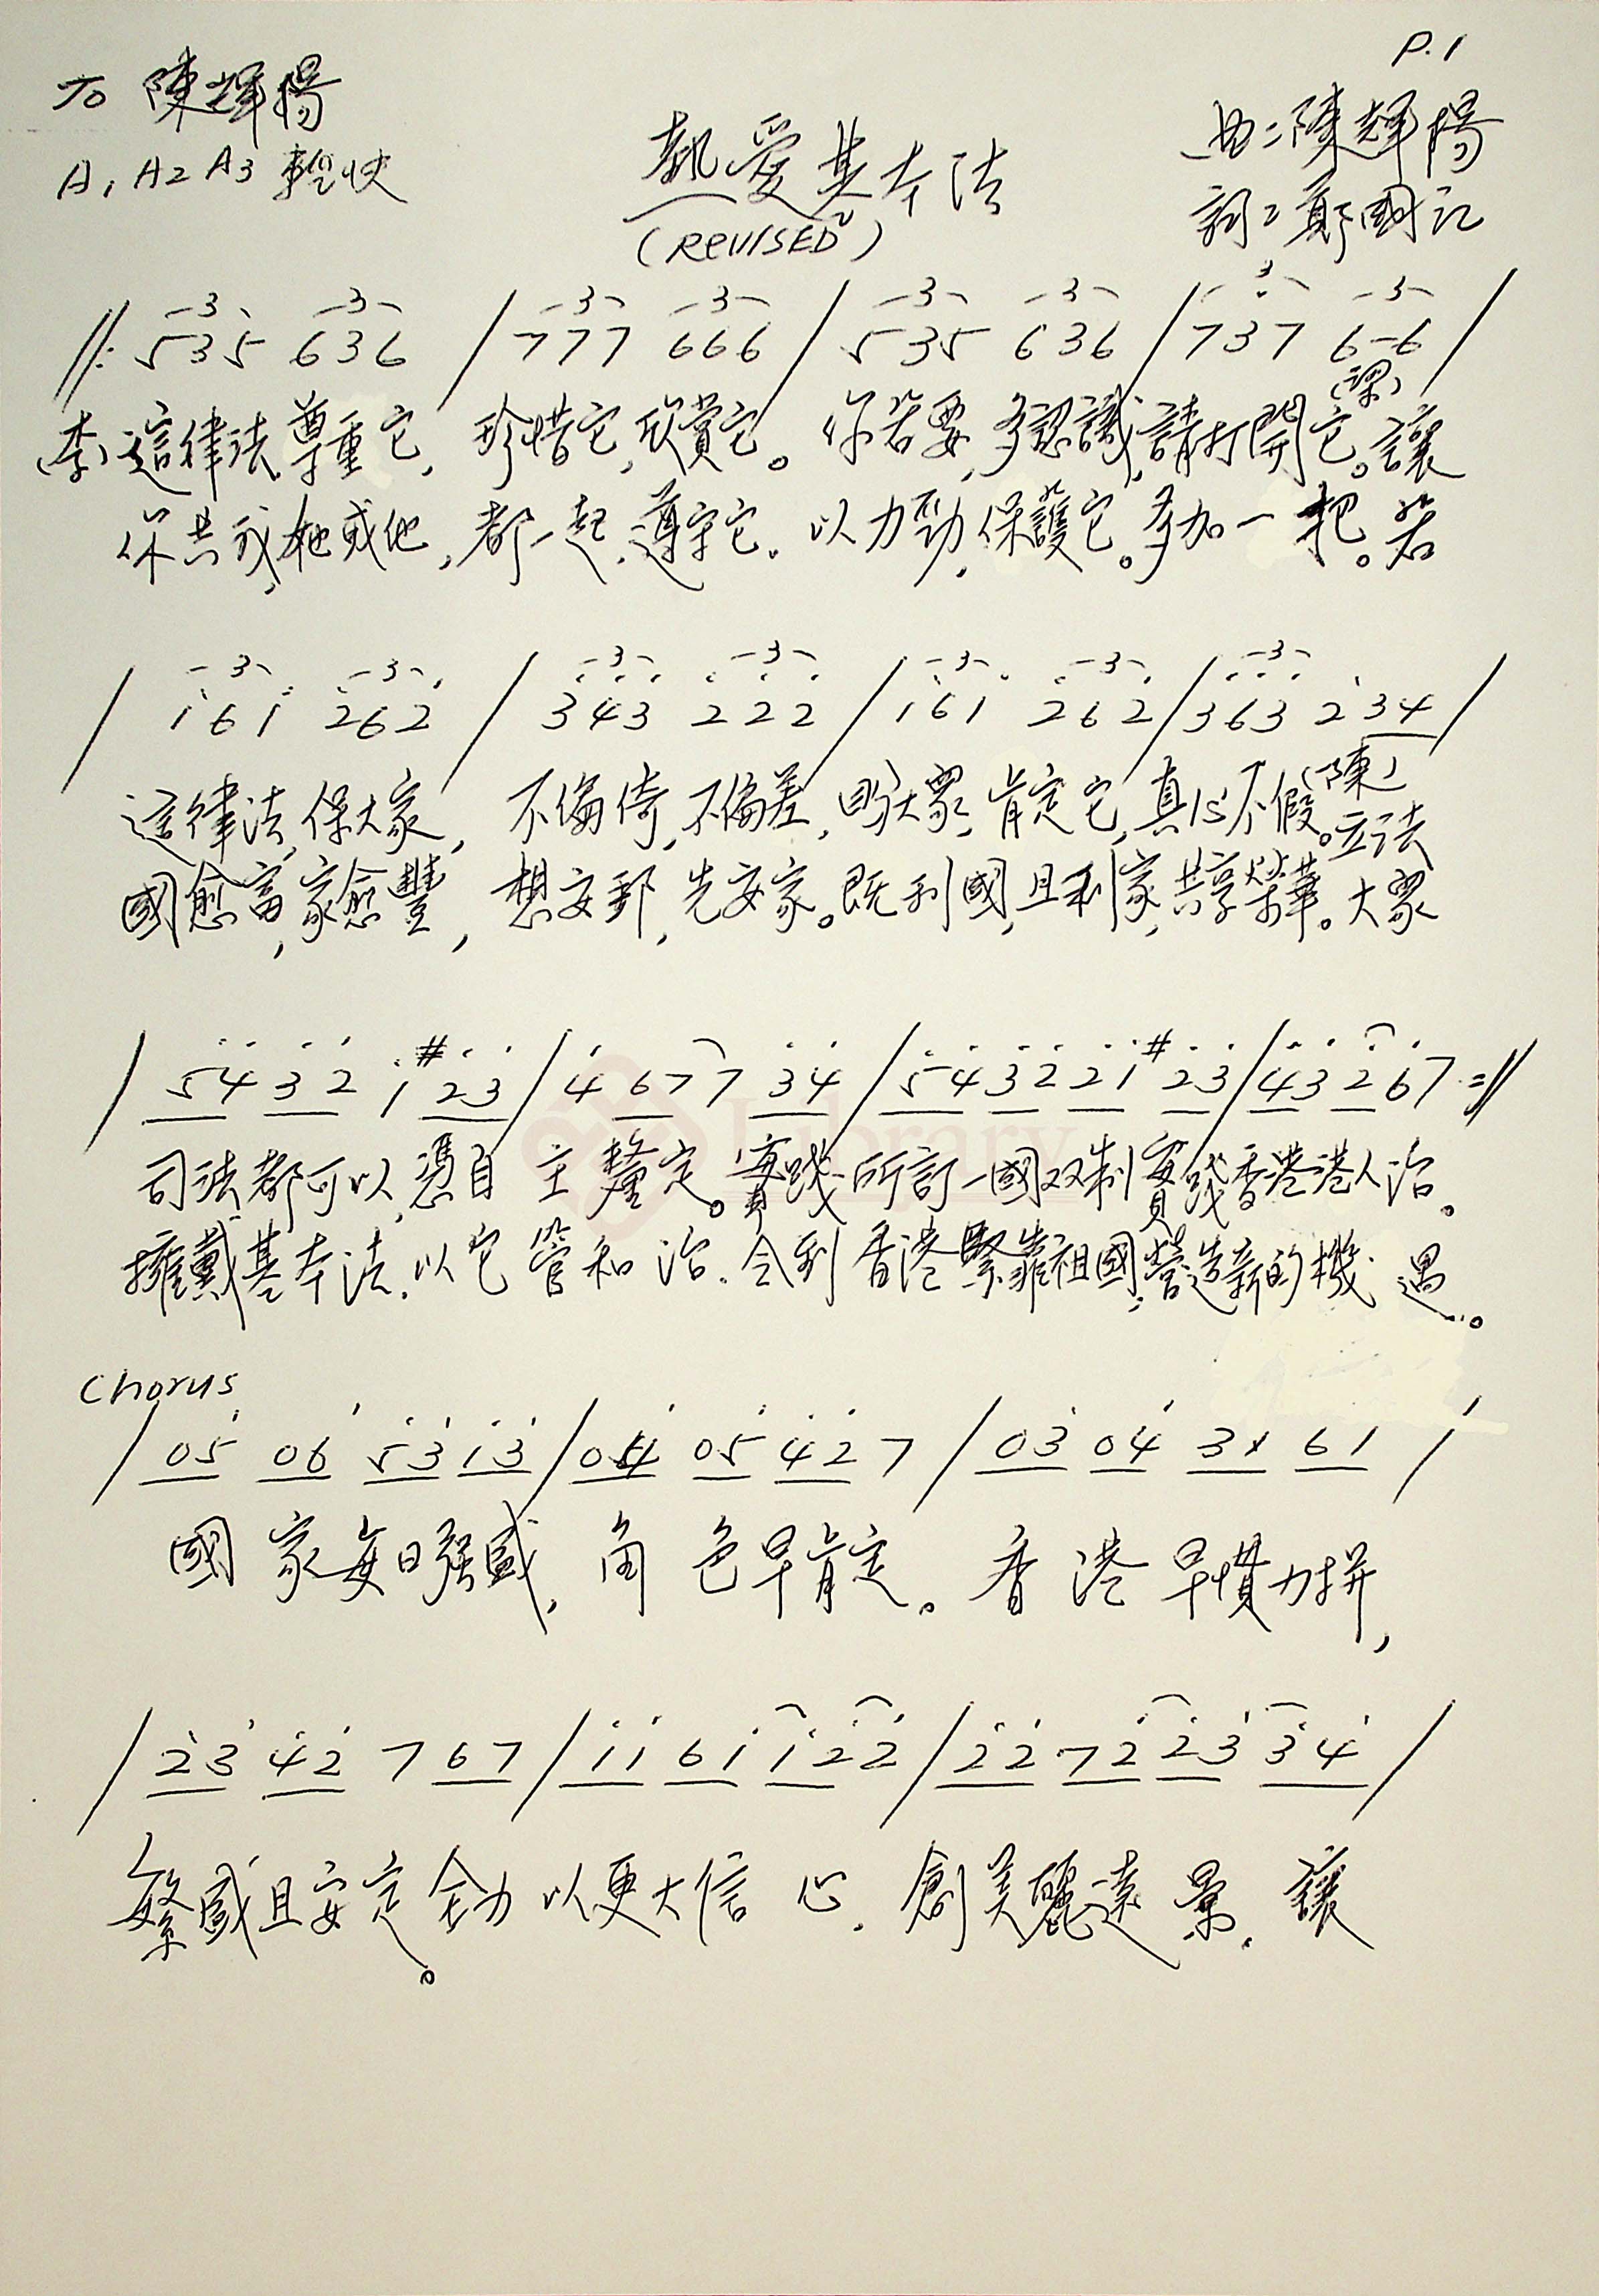 P.1
To 陳輝陽
曲:陳輝陽
A1 A2 A3 輕快
熱愛基本法
詞:鄭國江
(REVISED)
//: 535 636 / 777 666 / 535 636 / 737 6-6 /
(李)這律法,尊重它,珍惜它,欣賞它。你若要,多認識,請打開它。(梁)讓
你共我,她或他,都一起,遵守它。以力勁,保護它。多加一把。若
/ 161 262 / 343 222 / 161 262 / 363 2 34 /
這律法,保大家,不偏倚,不偏差,盼大眾,肯定它,真心不假。(陳)立法
國愈富,家愈豐,想安邦,先安家。既利國,且利家,共享榮華。大眾
/ 54 32 1 #23 / 4 67 7 34 / 54 32 21 #23 / 43 2 67 ://
司法都可以,憑自主釐定。實踐所訂一國双制實踐香港港人治。
擁戴基本法.以它管和治.令到香港緊靠祖國,營造新的機遇...。
Chorus
/ 05 06 53 13 / 04 05 42 7 / 03 04 31 61 /
國家每日強盛,角色早肯定。香港早慣力拼,
/ 23 42 7 67 / 11 61 12 2 / 22 72 23 34 /
繁盛且安定。全力以更大信心.創美麗遠景.讓